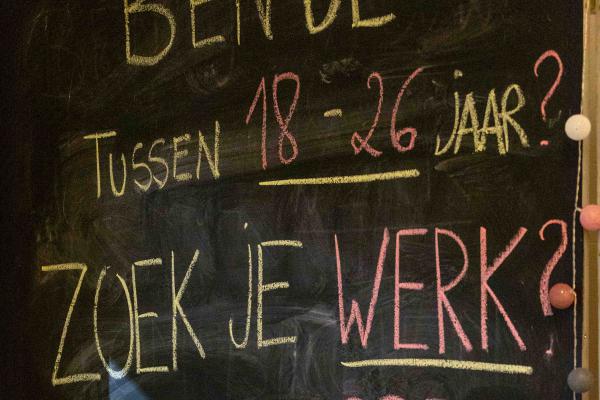 BEN JE
TUSSEN 18-26 JAAR?
ZOEK JE WERK?